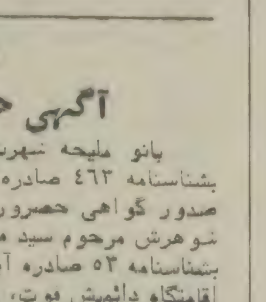 آگهی
بانو ملیحه
بشناسنامه ٤٦٣ صادره
صدور گواهی حصرور
شوهرش مرحوم سید
بشناسنامه ٥٣ صادره
اقامتگاه دائمیش فوت